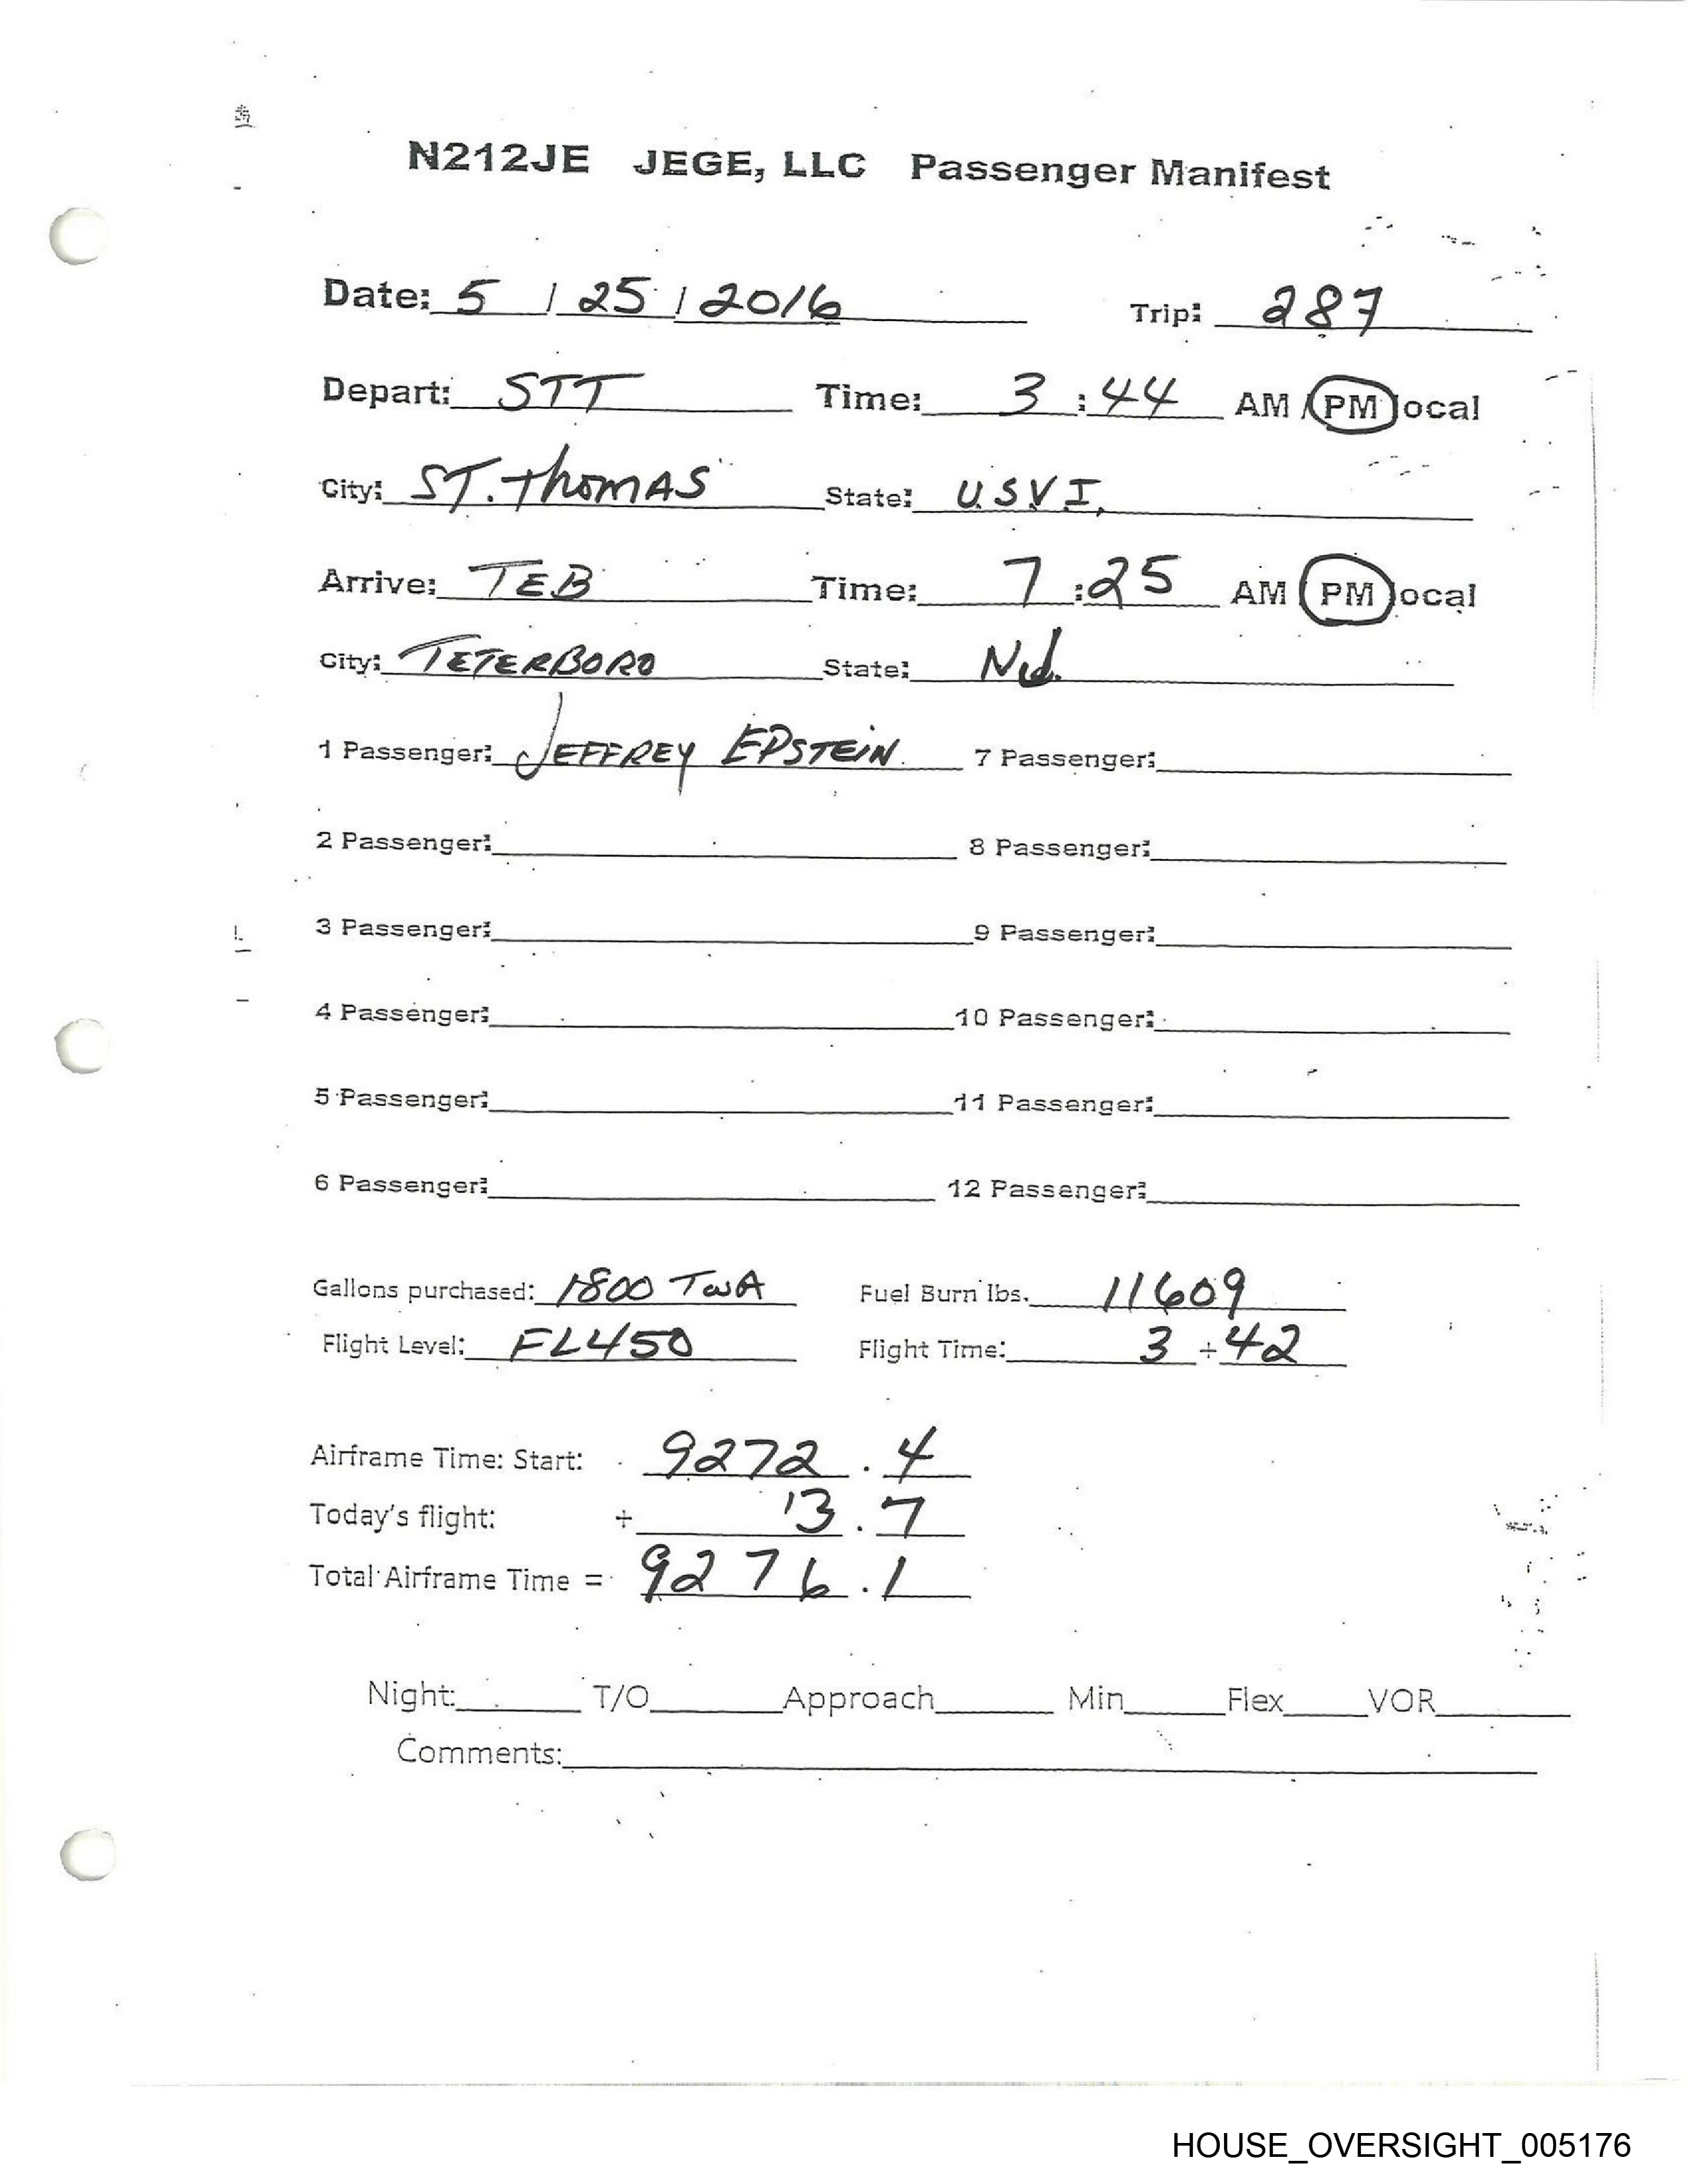 N212JE JEGE, LLC Passenger Manifest
Date: 5 / 25 / 2016 Trip: 287
Depart: STT Time: 3 : 44 AM / PM local
City: ST. THOMAS State: U.S.V.I.
Arrive: TEB Time: 7 : 25 AM / PM local
City: TETERBORO State: NJ.
1 Passenger: JEFFREY EPSTEIN 7 Passenger:
2 Passenger: 8 Passenger:
3 Passenger: 9 Passenger:
4 Passenger: 10 Passenger:
5 Passenger: 11 Passenger:
6 Passenger: 12 Passenger:
Gallons purchased: 1800 TWA Fuel Burn lbs. 11609
Flight Level: FL450 Flight Time: 3 + 42
Airframe Time: Start: 9272 . 4
Today's flight: + 3 . 7
Total Airframe Time = 9276 . 1
Night: T/O Approach Min Flex VOR
Comments:
HOUSE_OVERSIGHT_005176